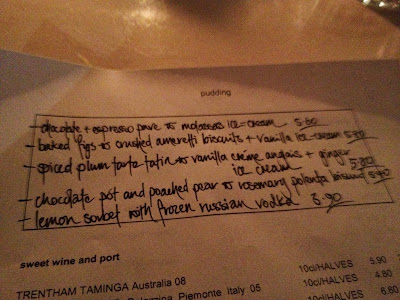 pudding
- chocolate + espresso pave w molasses ice-cream 5.80
- baked figs w crushed amaretti biscuits + vanilla ice-cream 5.80
- spiced plum tarte tatin w vanilla creme anglais + ginger
ice cream 5.80
- chocolate pot and poached pear w rosemary polenta biscuit 5.40
- lemon sorbet with frozen russian vodka 5.90
sweet wine and port
TRENTHAM TAMINGA Australia 08 10cl/HALVES 5.90
Piemonte Italy 05 10cl/HALVES 4.80
10cl/HALVES 6.60